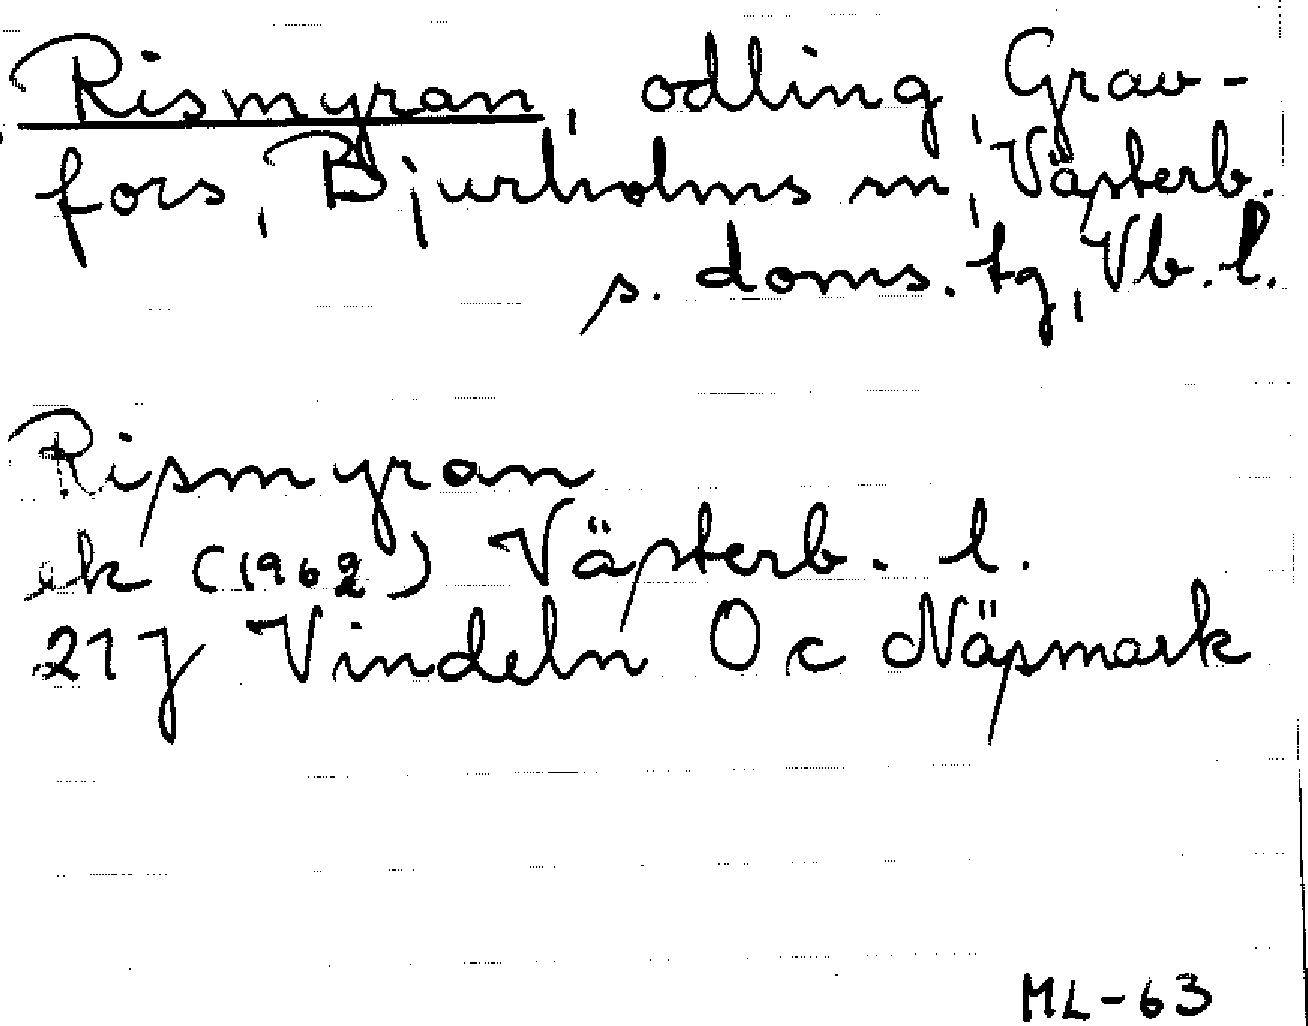 Rismyran, odling, Grav-
fors, Bjurholms sn, Västerb.
s. doms. tg, Vb. l.
Rismyran
ek (1962) Västerb. l.
21 J Vindeln 0 c Näsmark
ML-63